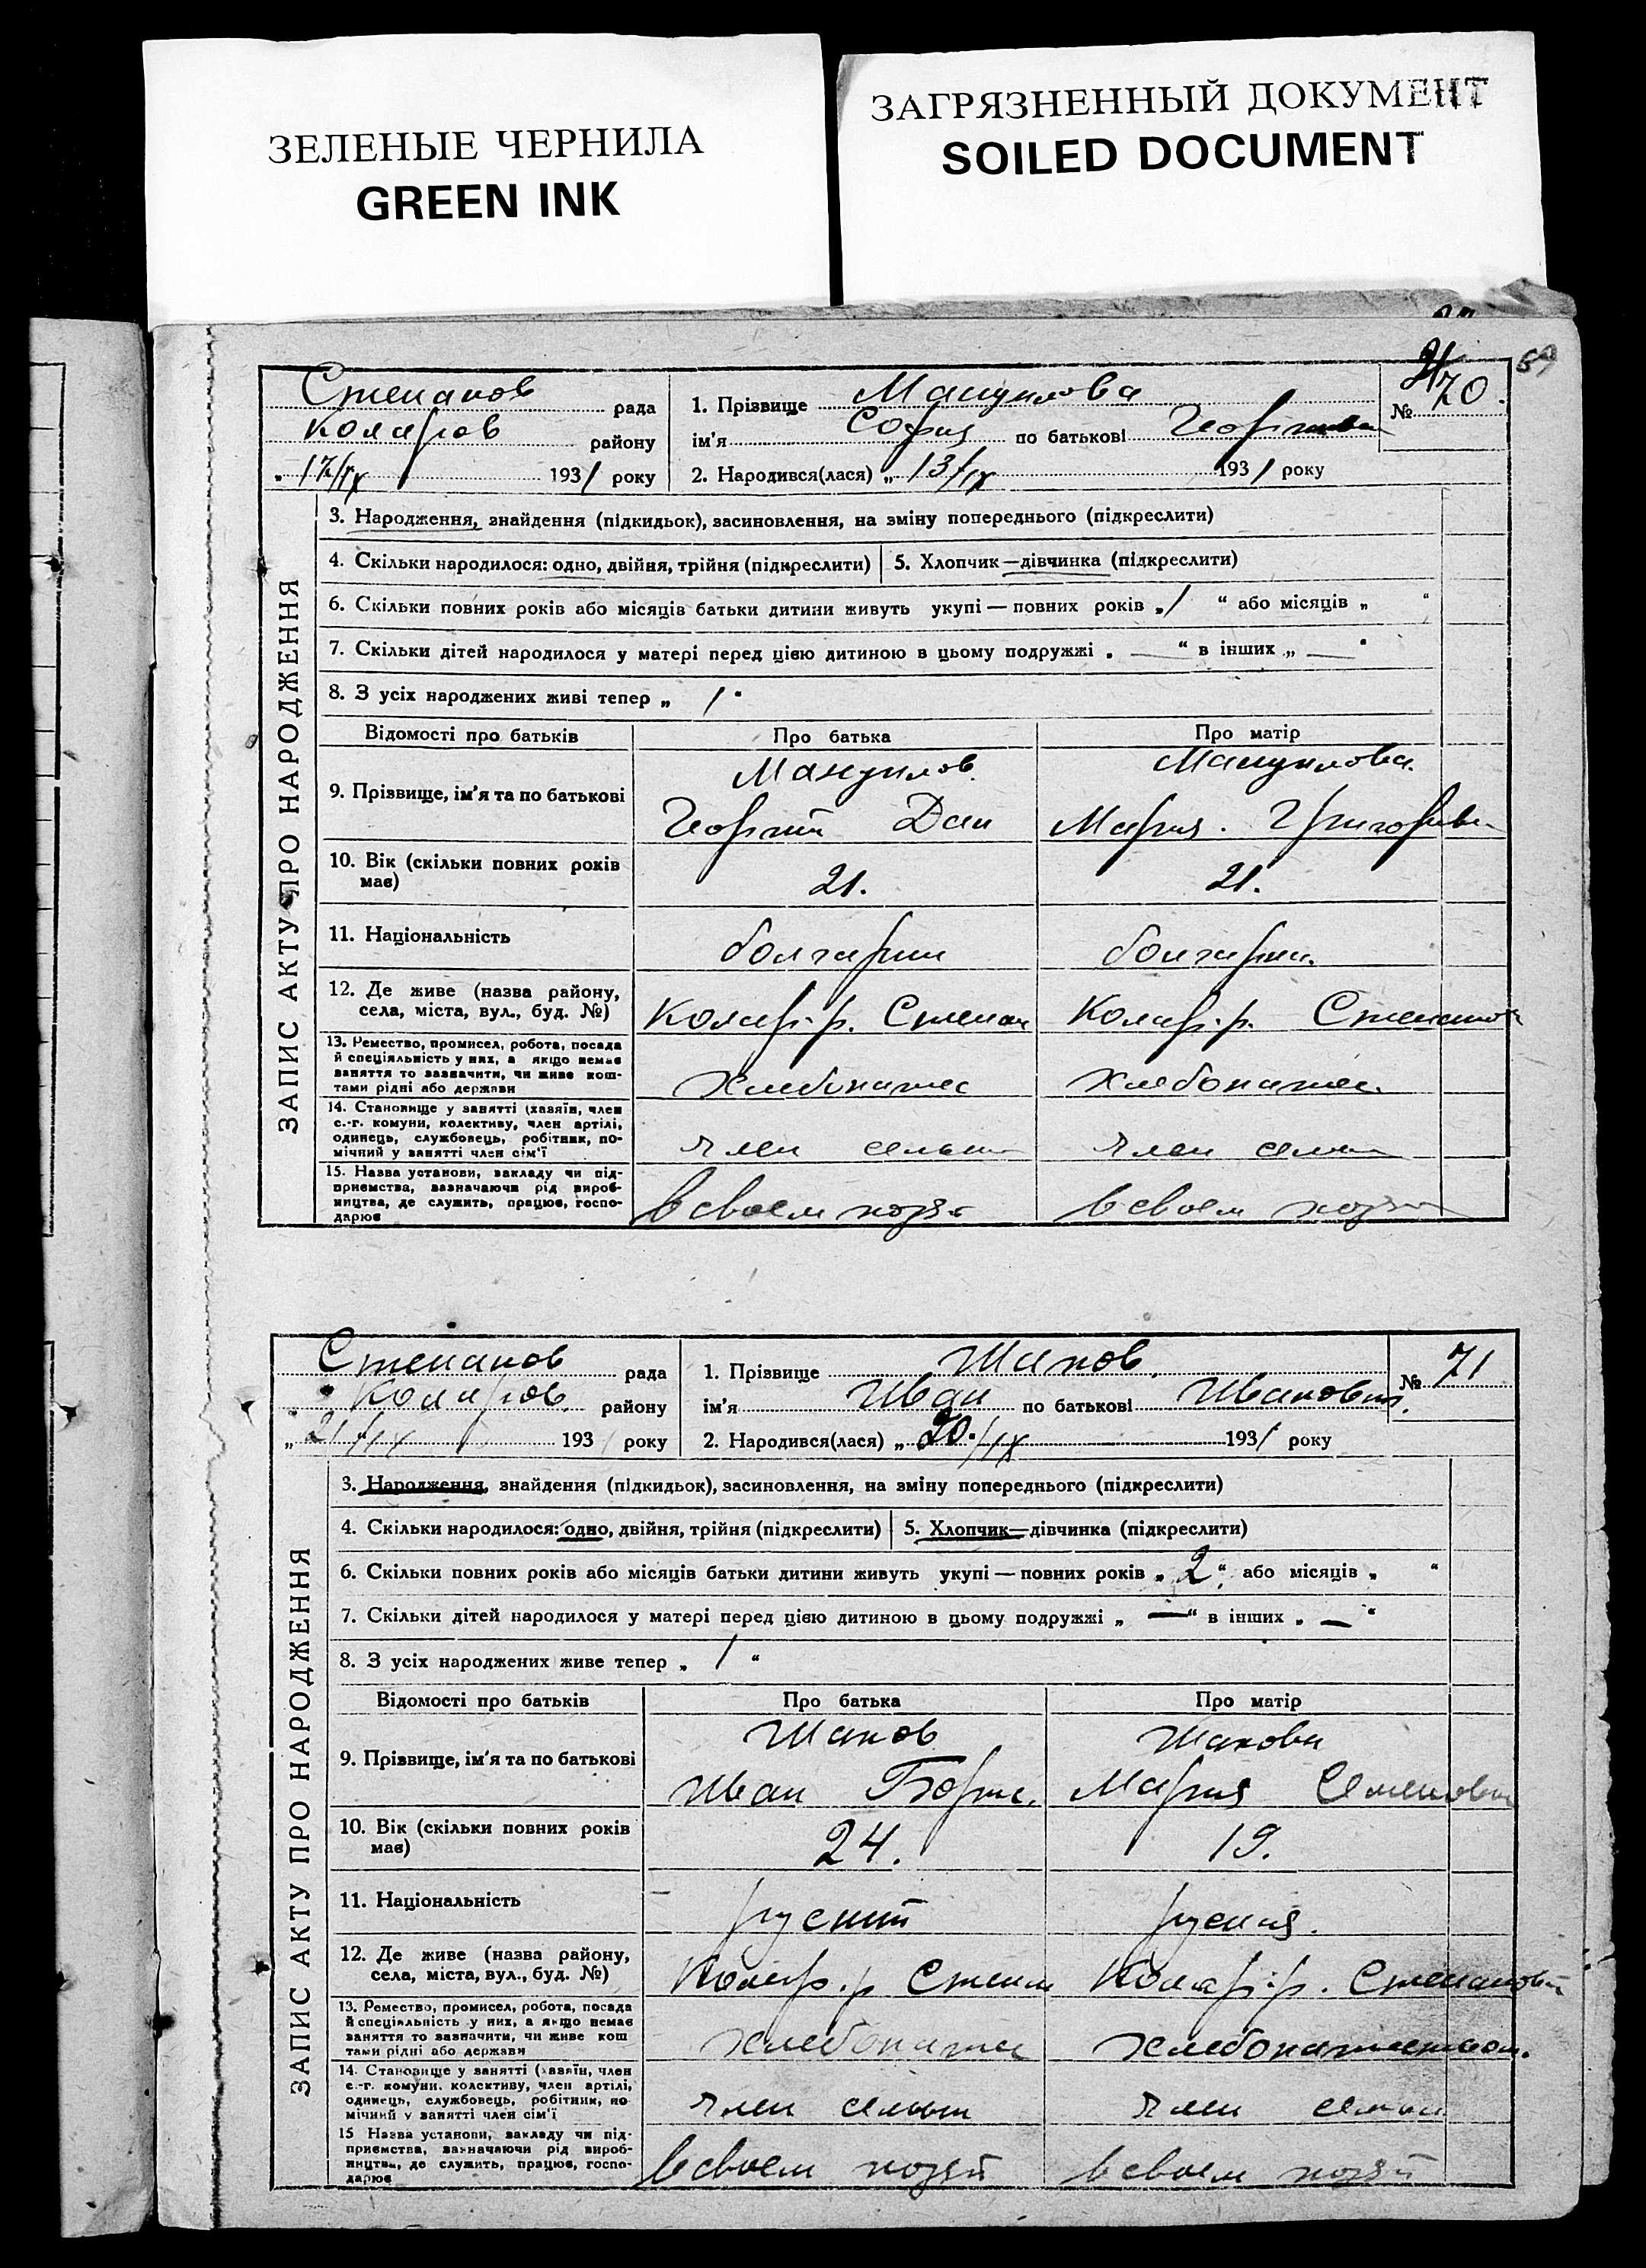 ЗЕЛЕНЫЕ ЧЕРНИЛА
GREEN INK
ЗАГРЯЗНЕННЫЙ ДОКУМЕНТ
SOILED DOCUMENT
59
Степанов рада
Коларов району
„ 17/IX 1931 року
1. Прізвище Мануилова
ім'я София по батькові
2. Народився(лася) „ 13/IX 1931 року
№ 70.
ЗАПИС АКТУ ПРО НАРОДЖЕННЯ
3. Народження, знайдення (підкидьок), засиновлення, на зміну попереднього (підкреслити)
4. Скільки народилося: одно, двійня, трійня (підкреслити) 5. Хлопчик—дівчинка (підкреслити)
6. Скільки повних років або місяців батьки дитини живуть укупі — повних років „ 1 “ або місяців „ “
7. Скільки дітей народилося у матері перед цією дитиною в цьому подружжі „ — “ в інших „ — “
8. З усіх народжених живі тепер „ 1 “
Відомості про батьків Про батька Про матір
9. Прізвище, ім'я та по батькові
Мануилов Мануилова.
Георгий Дан Мария.
10. Вік (скільки повних років має) 21. 21.
11. Національність болгарин болгарка.
12. Де живе (назва району, села, міста, вул., буд. №)
Колар. р. Степан Колар. р. Степанов
13. Ремество, промисел, робота, посада
й спеціяльність у них, а якщо немає
заняття то зазначити, чи живе кош-
тами рідні або держави
Хлебопашес Хлебопашес.
14. Становище у занятті (хазяїн, член
с.-г. комуни, колективу, член артілі,
одинець, службовець, робітник, по-
мічний у занятті член сім'ї
член семьи член семьи
15. Назва установи, закладу чи під-
приємства, зазначаючи рід вироб-
ництва, де служить, працює, госпо-
дарює
в своем хозя в своем хозя
Степанов рада
Коларов. району
„ 21/IX 193 року
1. Прізвище Шапов.
ім'я Иван по батькові Иванович.
2. Народився(лася) „ 20./IX 1931 року
№ 71
ЗАПИС АКТУ ПРО НАРОДЖЕННЯ
3. Народження, знайдення (підкидьок), засиновлення, на зміну попереднього (підкреслити)
4. Скільки народилося: одно, двійня, трійня (підкреслити) 5. Хлопчик—дівчинка (підкреслити)
6. Скільки повних років або місяців батьки дитини живуть укупі — повних років „ 2 “ або місяців „ “
7. Скільки дітей народилося у матері перед цією дитиною в цьому подружжі „ — “ в інших „ — “
8. З усіх народжених живе тепер „ 1 “
Відомості про батьків Про батька Про матір
9. Прізвище, ім'я та по батькові
Шапов Шапова
Иван Борис. Мария Семеновна
10. Вік (скільки повних років має) 24. 19.
11. Національність руский руская.
12. Де живе (назва району, села, міста, вул., буд. №)
Колар. р Степан Колар. р. Степановка
13. Ремество, промисел, робота, посада
й спеціяльність у них, а якщо немає
заняття то зазначити, чи живе кош
тами рідні або держави
хлебопашес хлебопашеством.
14. Становище у занятті (хазяїн, член
с.-г. комуни, колективу, член артілі,
одинець, службовець, робітник, по
мічний у занятті член сім'ї
член семьи член семьи
15 Назва установи, закладу чи під-
приємства, зазначаючи рід вироб-
ництва, де служить, працює, госпо-
дарює
в своем хозяй в своем хозяй